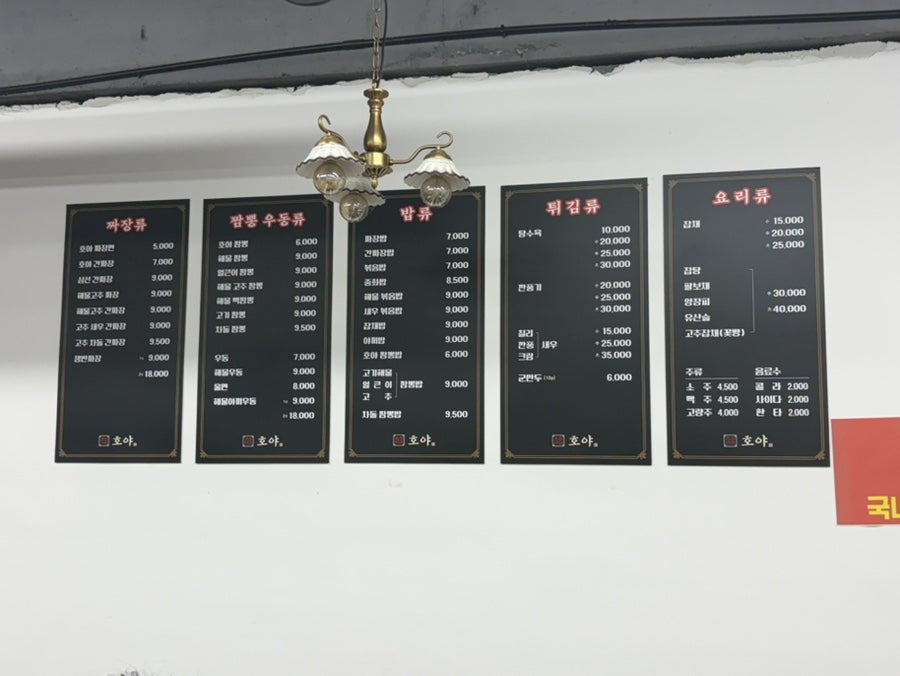 짜장류
호야 짜장면 5.000
호야 간짜장 7.000
삼선 간짜장 9.000
해물고추 짜장 9.000
해물고추 간짜장 9.000
고추 새우 간짜장 9.000
고추 차돌 간짜장 9.500
쟁반짜장 9.000
18.000
호야
짬뽕 우동류
호야 짬뽕 6.000
해물 짬뽕 9.000
얼큰이 짬뽕 9.000
해물 고추 짬뽕 9.000
해물 백짬뽕 9.000
고기 짬뽕 9.000
차돌 짬뽕 9.500
우동 7.000
해물우동 9.000
울면 8.000
해물야끼우동 9.000
18.000
호야
밥류
짜장밥 7.000
간짜장밥 7.000
볶음밥 7.000
중화밥 8.500
해물 볶음밥 9.000
새우 볶음밥 9.000
잡채밥 9.000
야끼밥 9.000
호야 짬뽕밥 6.000
고기해물
얼큰이 짬뽕밥 9.000
고추
차돌 짬뽕밥 9.500
호야
튀김류
탕수육 10.000
20.000
25.000
30.000
깐풍기 20.000
25.000
30.000
칠리 15.000
깐풍 새우 25.000
크림 35.000
군만두 (10p) 6.000
호야
요리류
잡채 15.000
20.000
25.000
잡탕
팔보채 30.000
양장피
유산슬 40.000
고추잡채(꽃빵)
주류 음료수
소주 4.500 콜라 2.000
맥주 4.500 사이다 2.000
고량주 4.000 환타 2.000
호야
국내